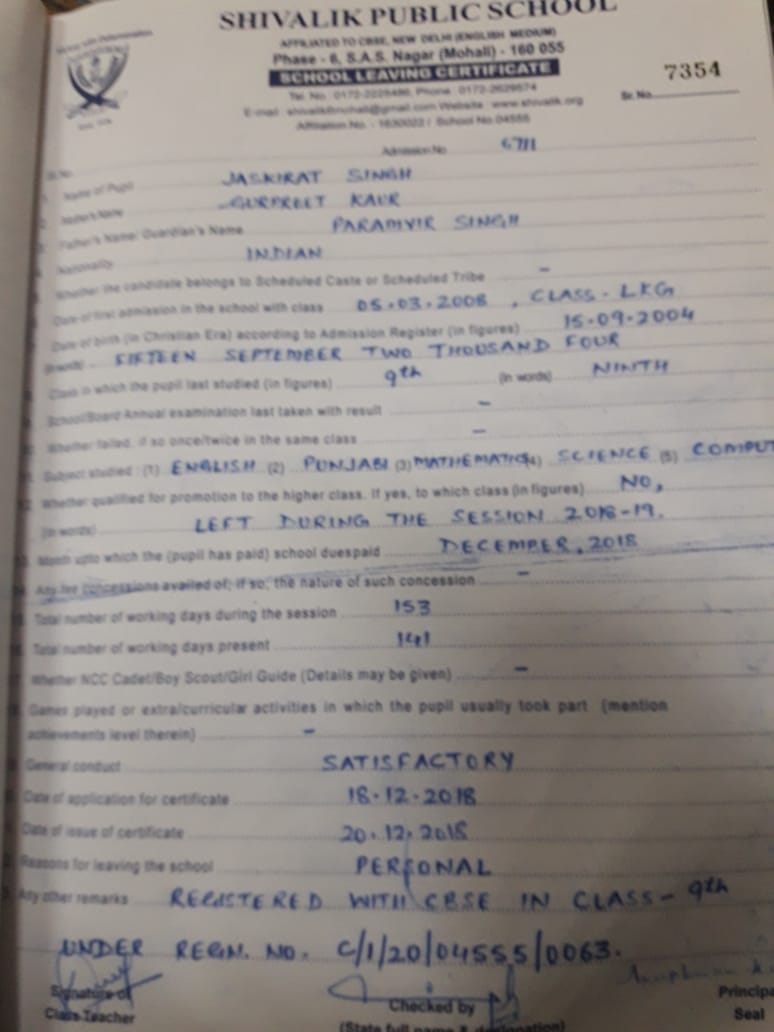 SHIVALIK PUBLIC SCHOOL
AFFILIATED TO CBSE, NEW DELHI (ENGLISH MEDIUM)
Phase - 6, S.A.S. Nagar (Mohali) - 160 055
SCHOOL LEAVING CERTIFICATE
Tel. No.: 0172-2225486, Phone: 0172-2629574
E-mail: shivalikmohali@gmail.com Website: www.shivalik.org
Affiliation No. - 1630022 / School No.04555
7354
Sr. No.
Admission No. 6711
Name of Pupil JASKIRAT SINGH
Mother's Name GURPREET KAUR
Father's Name/ Guardian's Name PARAMVIR SINGH
Nationality INDIAN
Whether the candidate belongs to Scheduled Caste or Scheduled Tribe -
Date of first admission in the school with class 05.03.2008, CLASS - LKG
Date of birth (in Christian Era) according to Admission Register (in figures) 15-09-2004
(in words) FIFTEEN SEPTEMBER TWO THOUSAND FOUR
Class in which the pupil last studied (in figures) 9th (in words) NINTH
School/Board Annual examination last taken with result -
Whether failed, if so once/twice in the same class -
Subject studied: (1) ENGLISH (2) PUNJABI (3) MATHEMATICS (4) SCIENCE (5) COMPUT
Whether qualified for promotion to the higher class. If yes, to which class (in figures) NO,
(in words) LEFT DURING THE SESSION 2018-19.
Month upto which the (pupil has paid) school duespaid DECEMBER, 2018
Any fee concessions availed of; if so, the nature of such concession -
Total number of working days during the session 153
Total number of working days present 141
Whether NCC Cadet/Boy Scout/Girl Guide (Details may be given) -
Games played or extra/curricular activities in which the pupil usually took part (mention
achievements level therein) -
General conduct SATISFACTORY
Date of application for certificate 18.12.2018
Date of issue of certificate 20.12.2018
Reasons for leaving the school PERSONAL
Any other remarks REGISTERED WITH CBSE IN CLASS - 9th
UNDER REGN. NO. C/1/20/04555/0063.
Signature of
Class Teacher
Checked by
(State full name & designation)
Principa
Seal